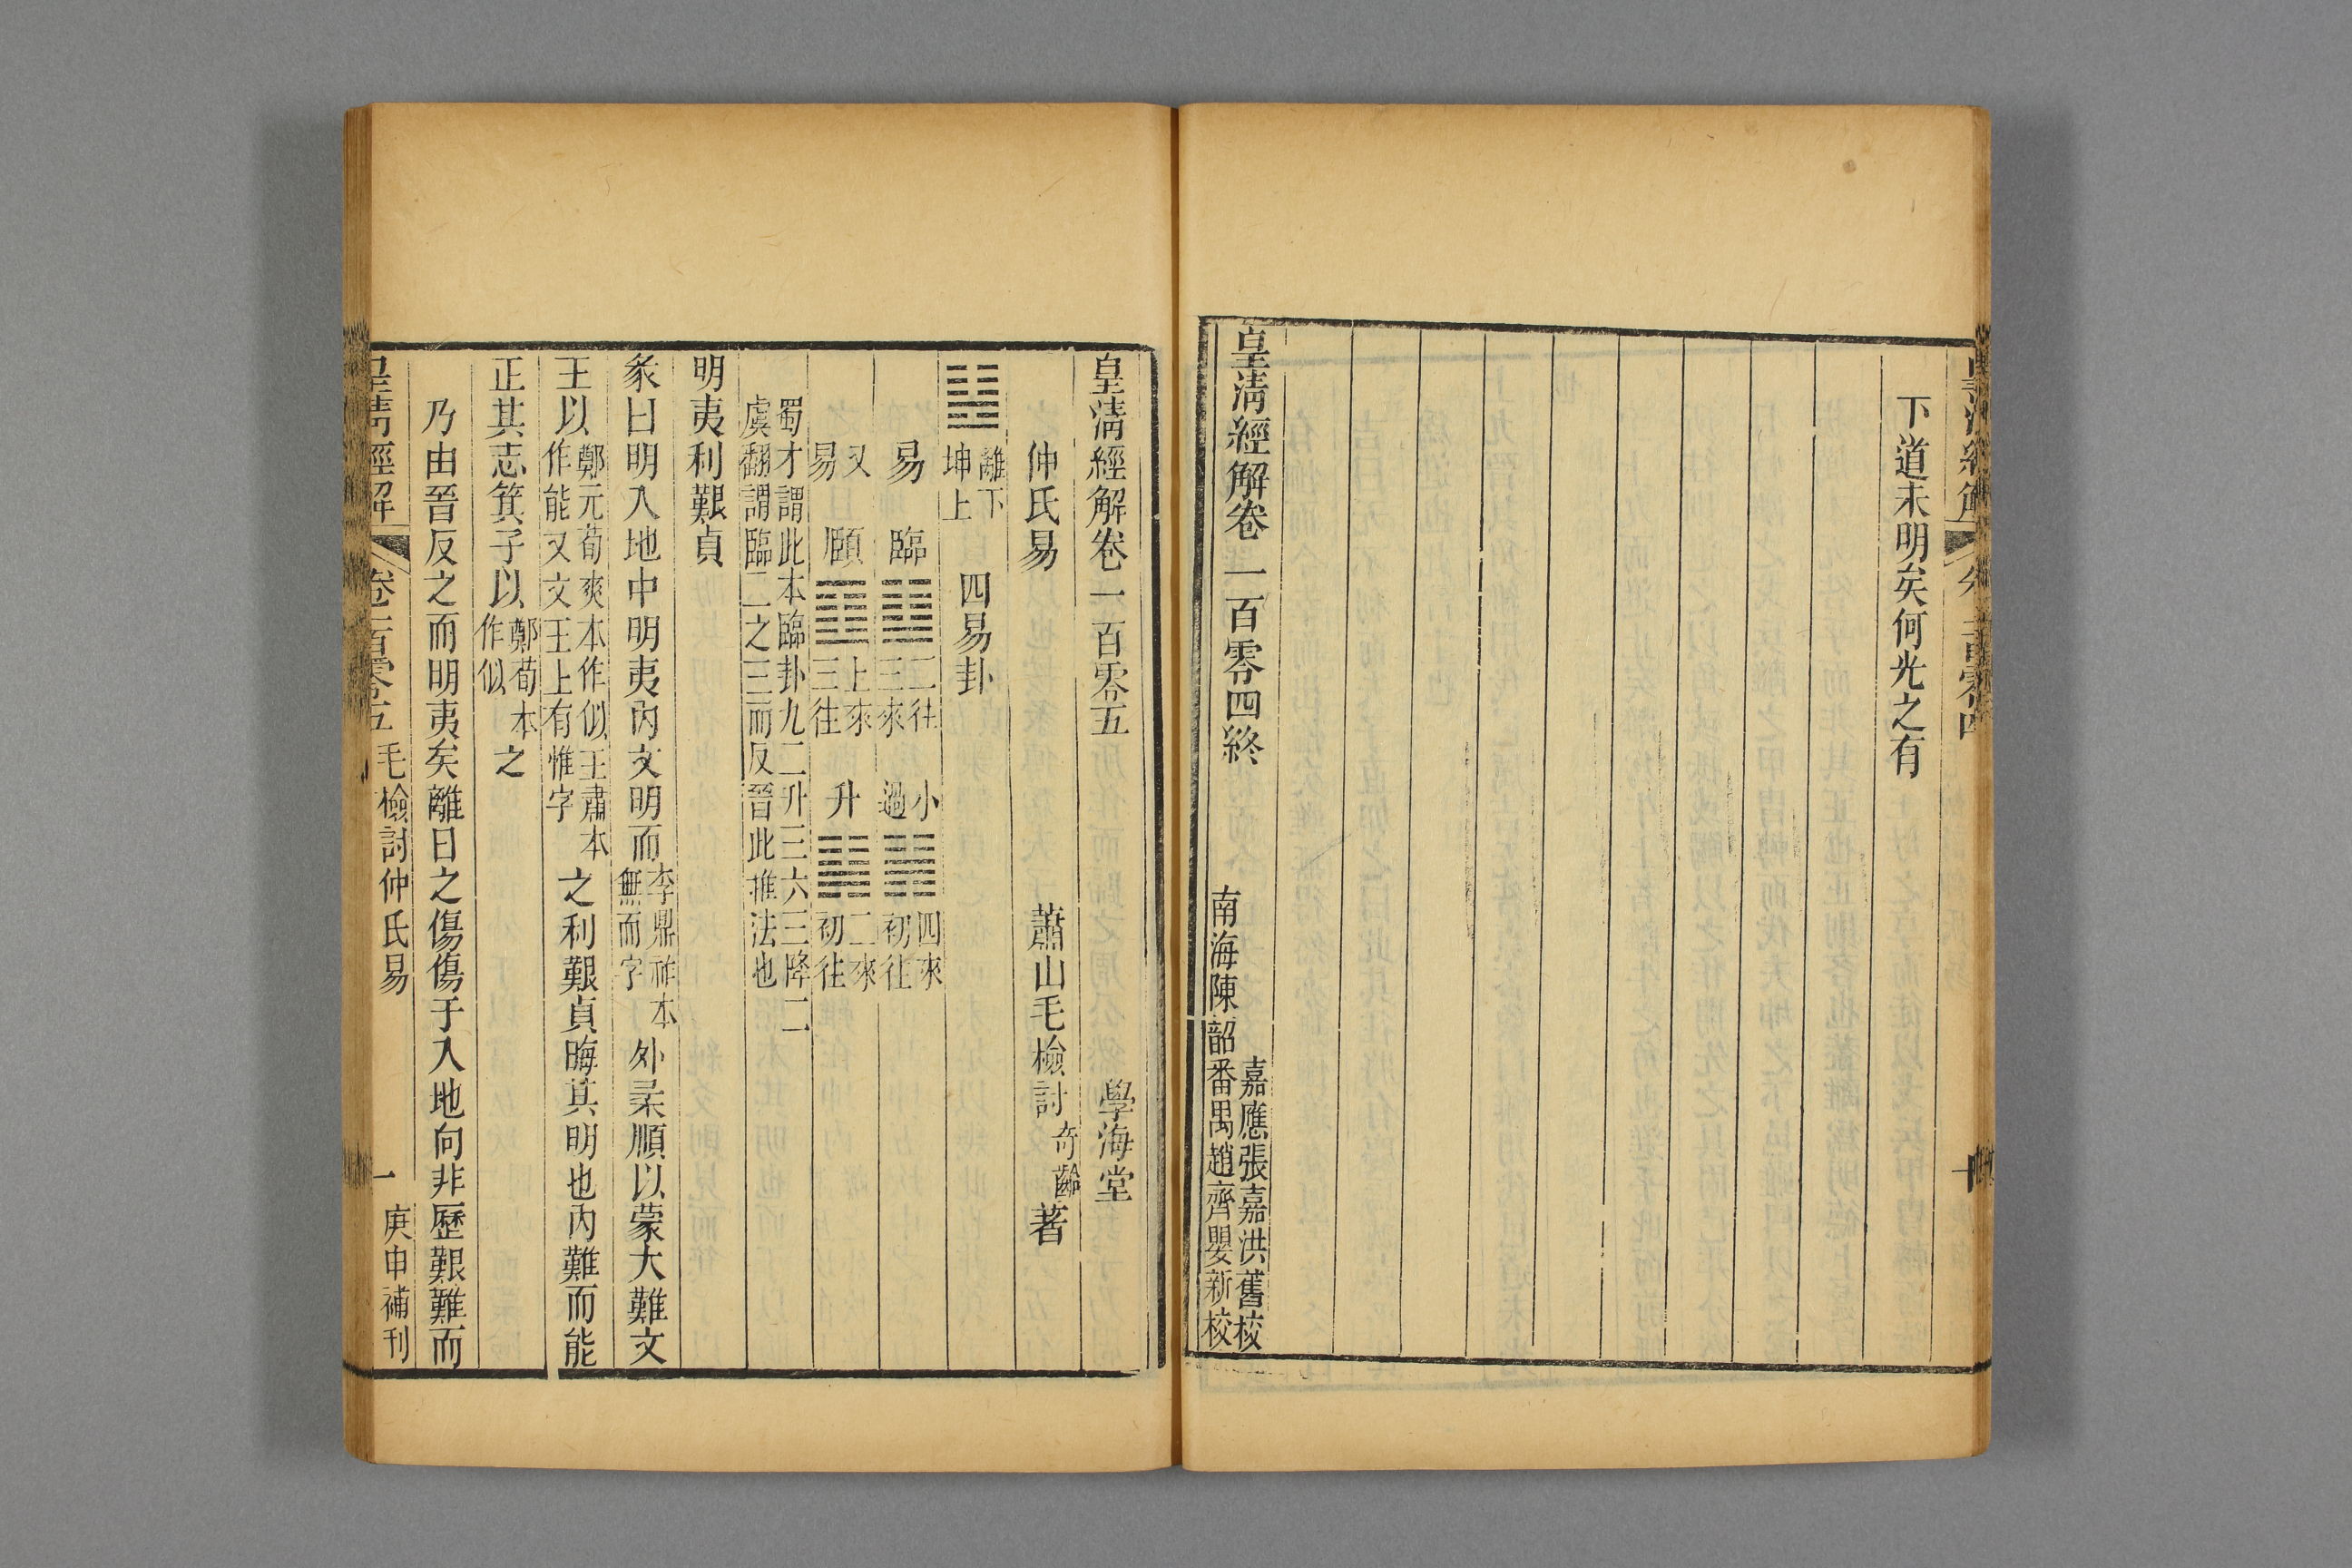 下道未明矣何光之有
皇淸經解卷一百零四終
嘉應張嘉洪舊校
南海陳韶番禺趙齊嬰新校
皇淸經解卷一百零五 學海堂
仲氏易 蕭山毛檢討奇齡著
䷣離下坤上 四易卦
易 臨䷒二往三來 小過䷽四來初往
又易 頤䷚上來三往 升䷭二來初往
蜀才謂此本臨卦九二升三六三降二
虞翻謂臨二之三而反晉此推法也
明夷利艱貞
彖曰明入地中明夷內文明而李鼎祚本無而字外柔順以蒙大難文
王以鄭元荀爽本作似王肅本作能又文王上有惟字之利艱貞晦其明也內難而能
正其志箕子以鄭荀本作似之
乃由晉反之而明夷矣離日之傷傷于入地向非歷艱難而
皇淸經解 卷一百零五 毛檢討仲氏易 一 庚申補刊